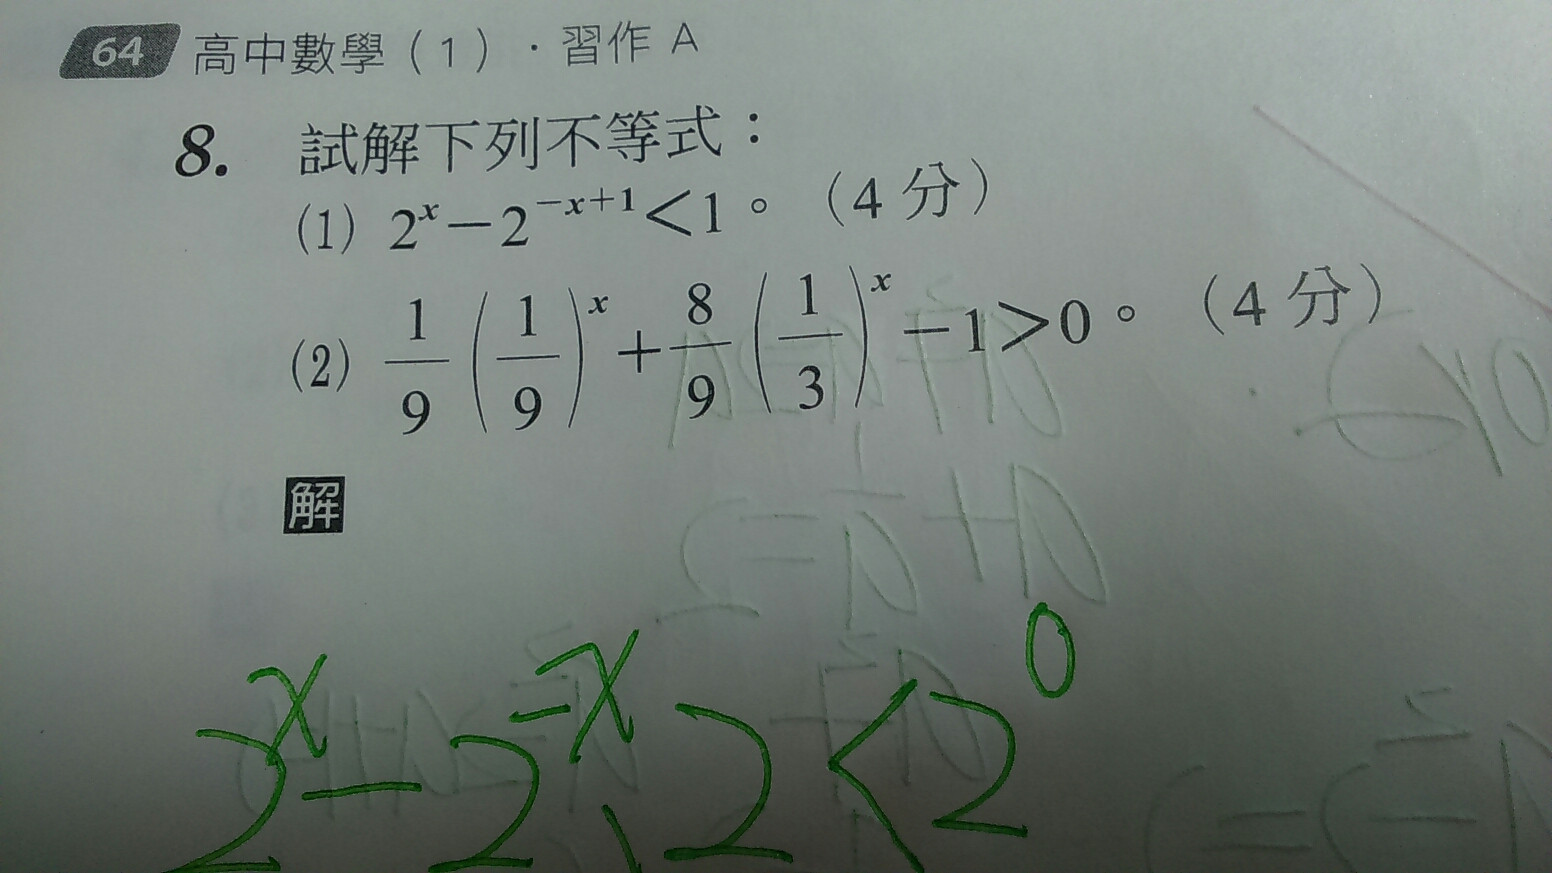 64 高中數學（1）．習作 A
8. 試解下列不等式：
(1) 2^x－2^(－x+1)＜1。（4 分）
(2) 1/9 (1/9)^x + 8/9 (1/3)^x －1＞0。（4 分）
解
2^x－2^(－x)·2＜2^0